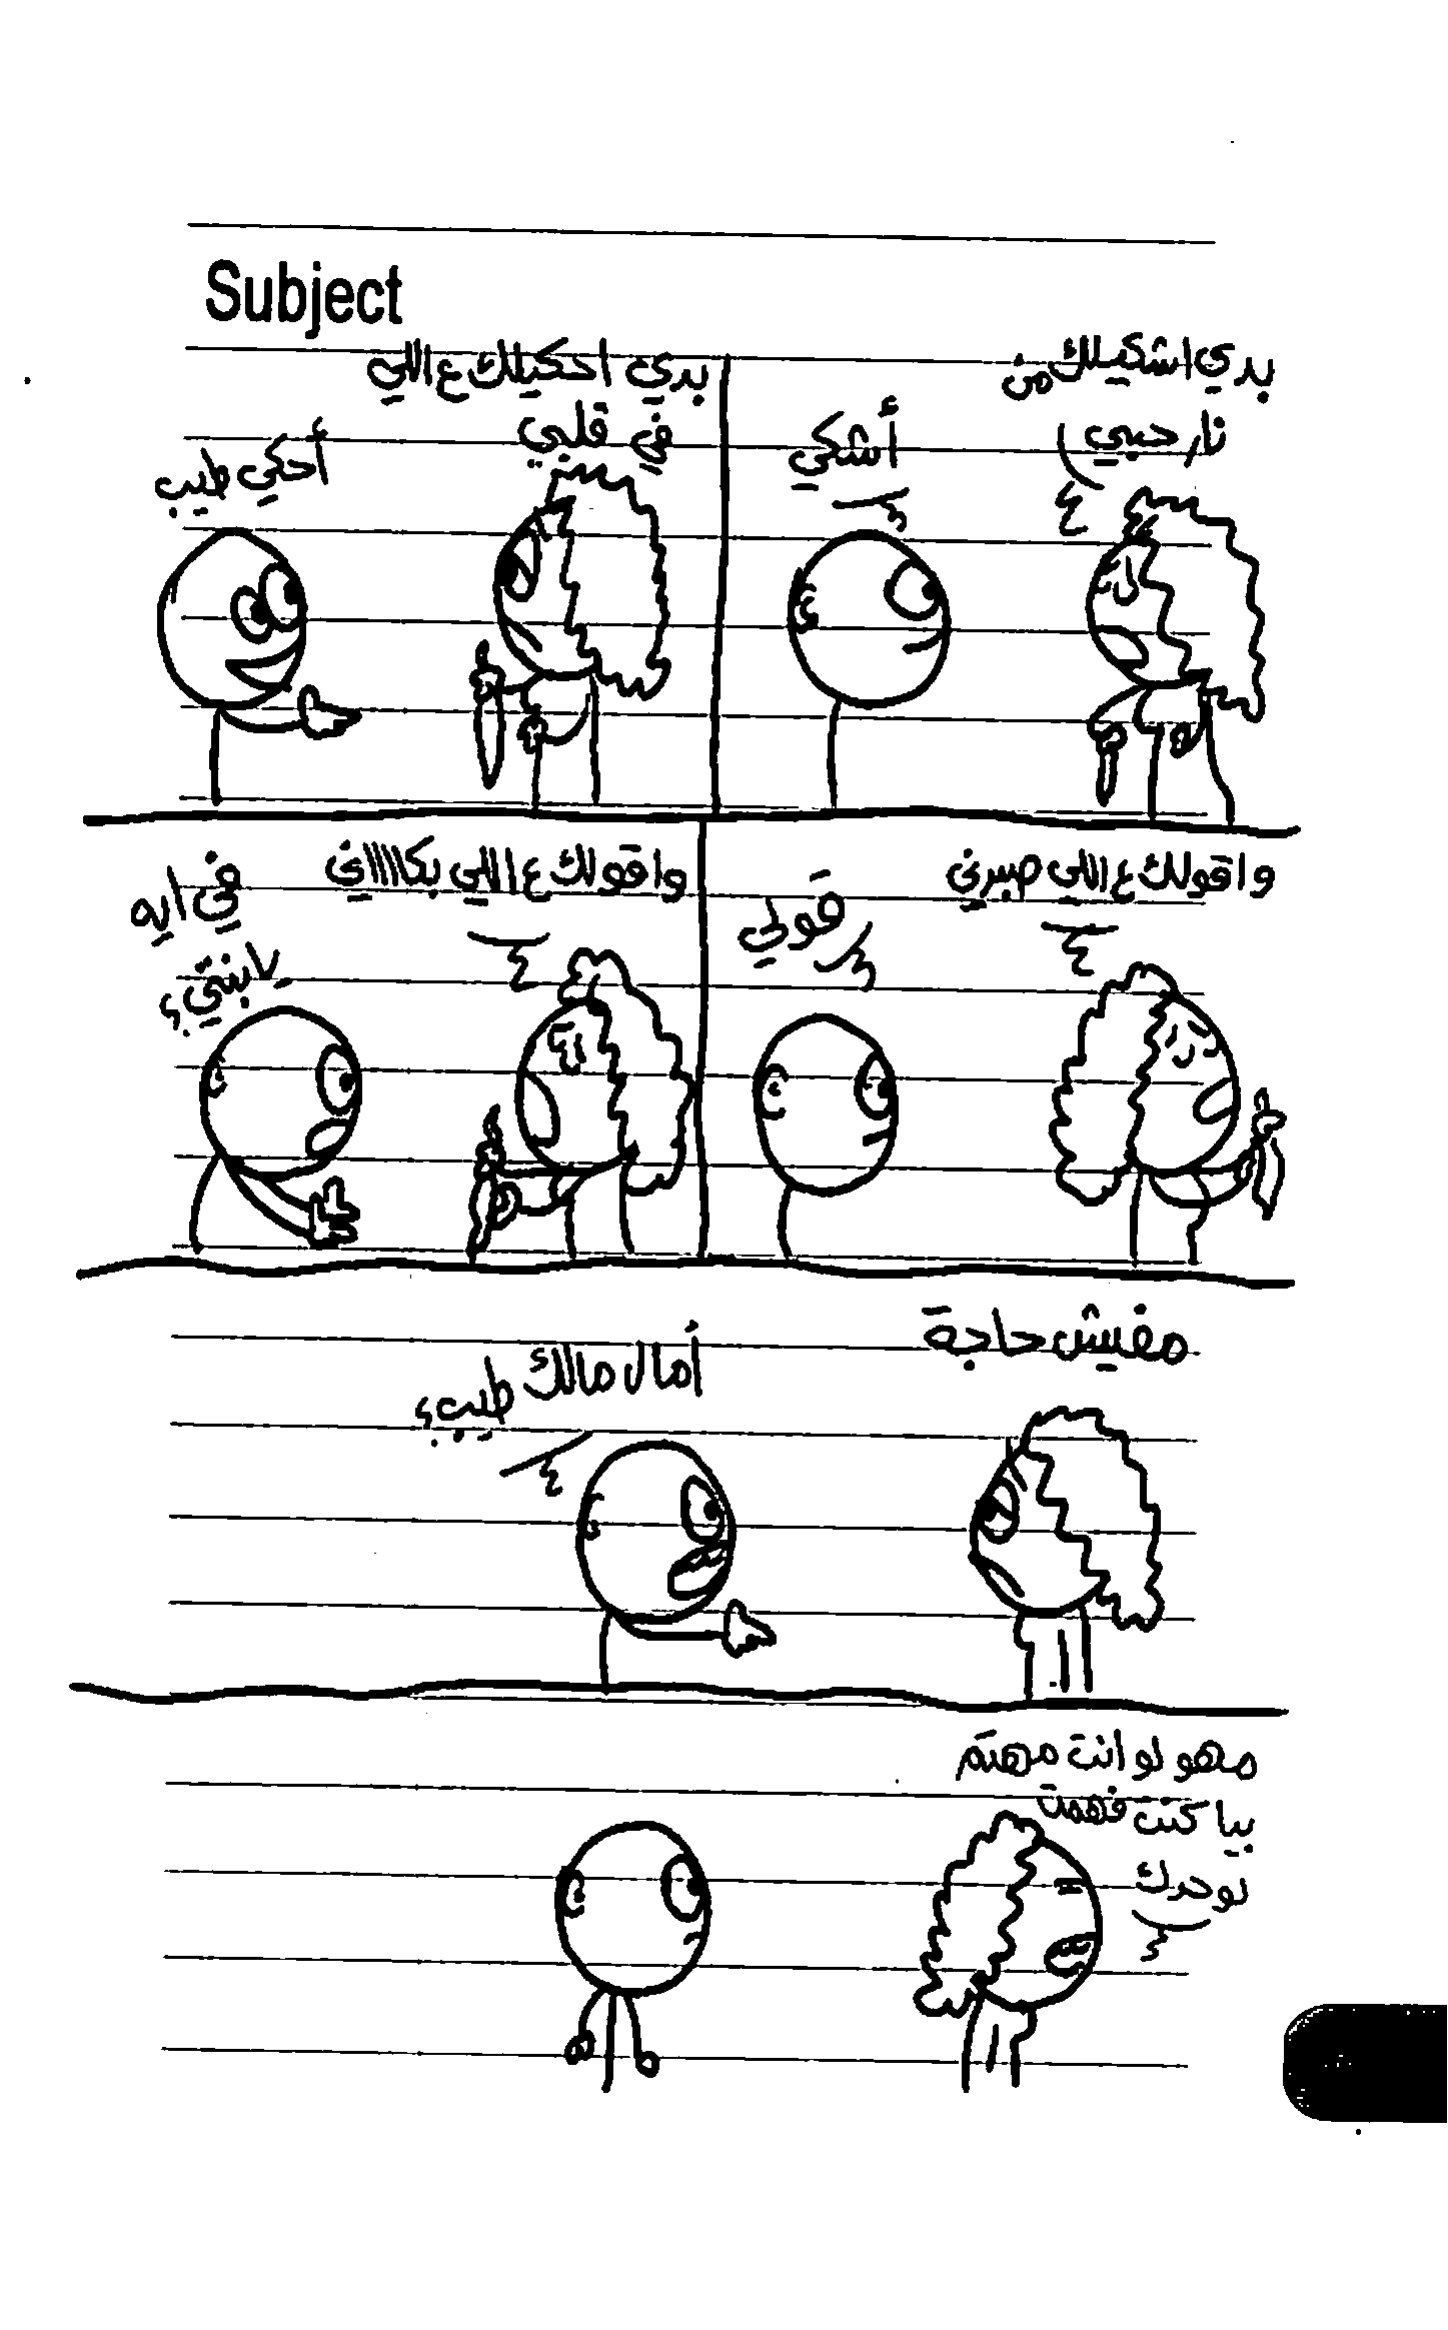 Subject
بدي اشكيلك من
نار حبي
أشكي
بدي احكيلك ع اللي
في قلبي
أحكي طيب
واقولك ع اللي صبرني
قولي
واقولك ع اللي بكاااااني
في ايه
يا بنتي؟
مفيش حاجة
أمال مالك
طيب؟
مهو لو انت مهتم
بيا كنت فهمت
لوحدك